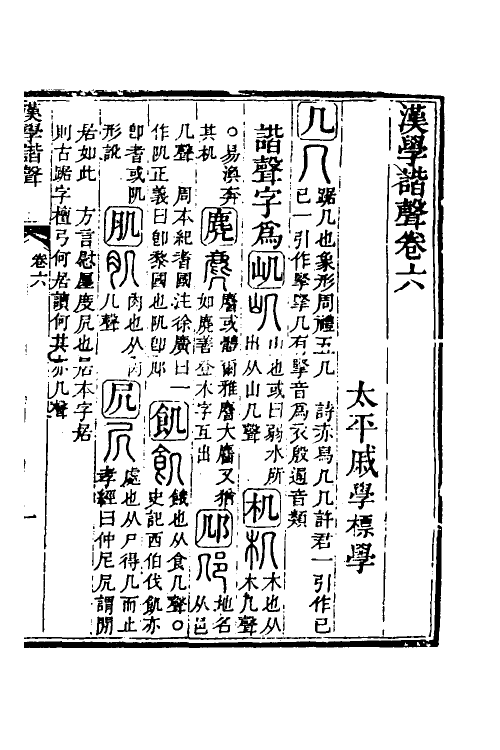 漢學諧聲卷六
太平戚學標學
几 几 踞几也象形周禮五几 詩赤舄几几許君一引作已
已一引作掔掔几有掔音爲衣殷通音類
諧聲字爲 屼 屼 山也或曰弱水所
出从山几聲 机 机 木也从
木几聲
○易渙奔
其机 麂 麂 麕或體爾雅麕大麕又猶
如麂善登木字互出 邟 邟 地名
从邑
几聲 周本紀耆國注徐廣曰一
作阢正義曰卽黎國也阢卽邟 飢 飢 餓也从食几聲○
史記西伯伐飢亦
卽耆或阢
形說 肌 肌 肉也从肉
几聲 凥 凥 處也从尸得几而止
孝經曰仲尼凥謂閒
居如此 方言慰廛度凥也居本字居
則古踞字檀弓何居讀何其亦几聲
漢學諧聲
卷六
一